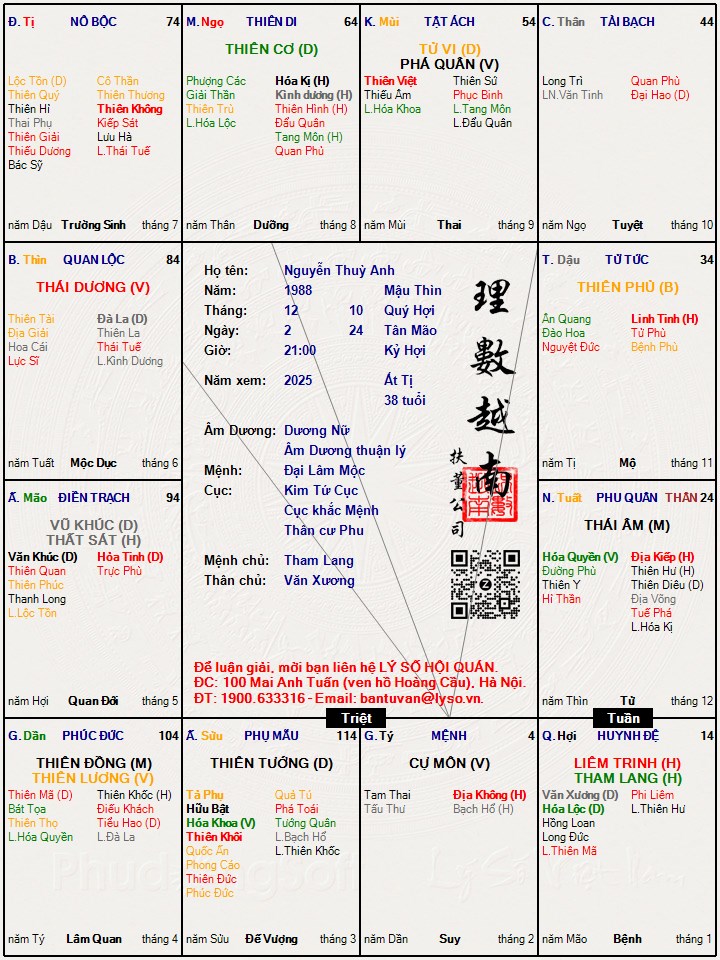 Đ. Tị NÔ BỘC 74
Lộc Tồn (D) Cô Thần
Thiên Quý Thiên Thương
Thiên Hỉ Thiên Không
Thai Phụ Kiếp Sát
Thiên Giải Lưu Hà
Thiếu Dương L.Thái Tuế
Bác Sỹ
năm Dậu Trường Sinh tháng 7
M. Ngọ THIÊN DI 64
THIÊN CƠ (D)
Phượng Các Hóa Kị (H)
Giải Thần Kình dương (H)
Thiên Trù Thiên Hình (H)
L.Hóa Lộc Đẩu Quân
Tang Môn (H)
Quan Phủ
năm Thân Dưỡng tháng 8
K. Mùi TẬT ÁCH 54
TỬ VI (D)
PHÁ QUÂN (V)
Thiên Việt Thiên Sứ
Thiếu Âm Phục Binh
L.Hóa Khoa L.Tang Môn
L.Đẩu Quân
năm Mùi Thai tháng 9
C. Thân TÀI BẠCH 44
Long Trì Quan Phù
LN.Văn Tinh Đại Hao (D)
năm Ngọ Tuyệt tháng 10
B. Thìn QUAN LỘC 84
THÁI DƯƠNG (V)
Thiên Tài Đà La (D)
Địa Giải Thiên La
Hoa Cái Thái Tuế
Lực Sĩ L.Kình Dương
năm Tuất Mộc Dục tháng 6
Họ tên: Nguyễn Thuỳ Anh
Năm: 1988 Mậu Thìn
Tháng: 12 10 Quý Hợi
Ngày: 2 24 Tân Mão
Giờ: 21:00 Kỷ Hợi
Năm xem: 2025 Ất Tị
38 tuổi
Âm Dương: Dương Nữ
Âm Dương thuận lý
Mệnh: Đại Lâm Mộc
Cục: Kim Tứ Cục
Cục khắc Mệnh
Thân cư Phu
Mệnh chủ: Tham Lang
Thân chủ: Văn Xương
理數越南
扶董公司
Để luận giải, mời bạn liên hệ LÝ SỐ HỘI QUÁN.
ĐC: 100 Mai Anh Tuấn (ven hồ Hoàng Cầu), Hà Nội.
ĐT: 1900.633316 - Email: bantuvan@lyso.vn.
T. Dậu TỬ TỨC 34
THIÊN PHỦ (B)
Ân Quang Linh Tinh (H)
Đào Hoa Tử Phù
Nguyệt Đức Bệnh Phù
năm Tị Mộ tháng 11
Ấ. Mão ĐIỀN TRẠCH 94
VŨ KHÚC (D)
THẤT SÁT (H)
Văn Khúc (D) Hỏa Tinh (D)
Thiên Quan Trực Phù
Thiên Phúc
Thanh Long
L.Lộc Tồn
năm Hợi Quan Đới tháng 5
N. Tuất PHU QUÂN THÂN 24
THÁI ÂM (M)
Hóa Quyền (V) Địa Kiếp (H)
Đường Phù Thiên Hư (H)
Thiên Y Thiên Diêu (D)
Hỉ Thần Địa Võng
Tuế Phá
L.Hóa Kị
năm Thìn Tử tháng 12
Triệt
Tuần
G. Dần PHÚC ĐỨC 104
THIÊN ĐỒNG (M)
THIÊN LƯƠNG (V)
Thiên Mã (D) Thiên Khốc (H)
Bát Tọa Điếu Khách
Thiên Thọ Tiểu Hao (D)
L.Hóa Quyền L.Đà La
năm Tý Lâm Quan tháng 4
Ấ. Sửu PHỤ MẪU 114
THIÊN TƯỚNG (D)
Tả Phụ Quả Tú
Hữu Bật Phá Toái
Hóa Khoa (V) Tướng Quân
Thiên Khôi L.Bạch Hổ
Quốc Ấn L.Thiên Khốc
Phong Cáo
Thiên Đức
Phúc Đức
năm Sửu Đế Vượng tháng 3
G. Tý MỆNH 4
CỰ MÔN (V)
Tam Thai Địa Không (H)
Tấu Thư Bạch Hổ (H)
năm Dần Suy tháng 2
Q. Hợi HUYNH ĐỆ 14
LIÊM TRINH (H)
THAM LANG (H)
Văn Xương (D) Phi Liêm
Hóa Lộc (D) L.Thiên Hư
Hồng Loan
Long Đức
L.Thiên Mã
năm Mão Bệnh tháng 1